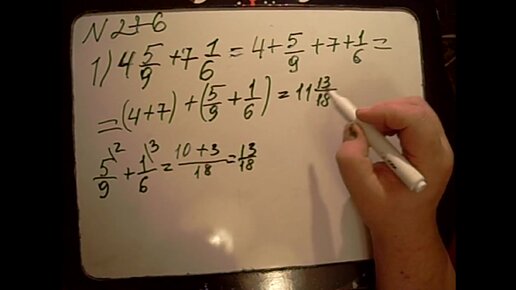 N 216
1) 4 5/9 + 7 1/6 = 4 + 5/9 + 7 + 1/6 =
= (4+7) + (5/9 + 1/6) = 11 13/18
5/9 \2 + 1/6 \3 = 10 + 3/18 = 13/18